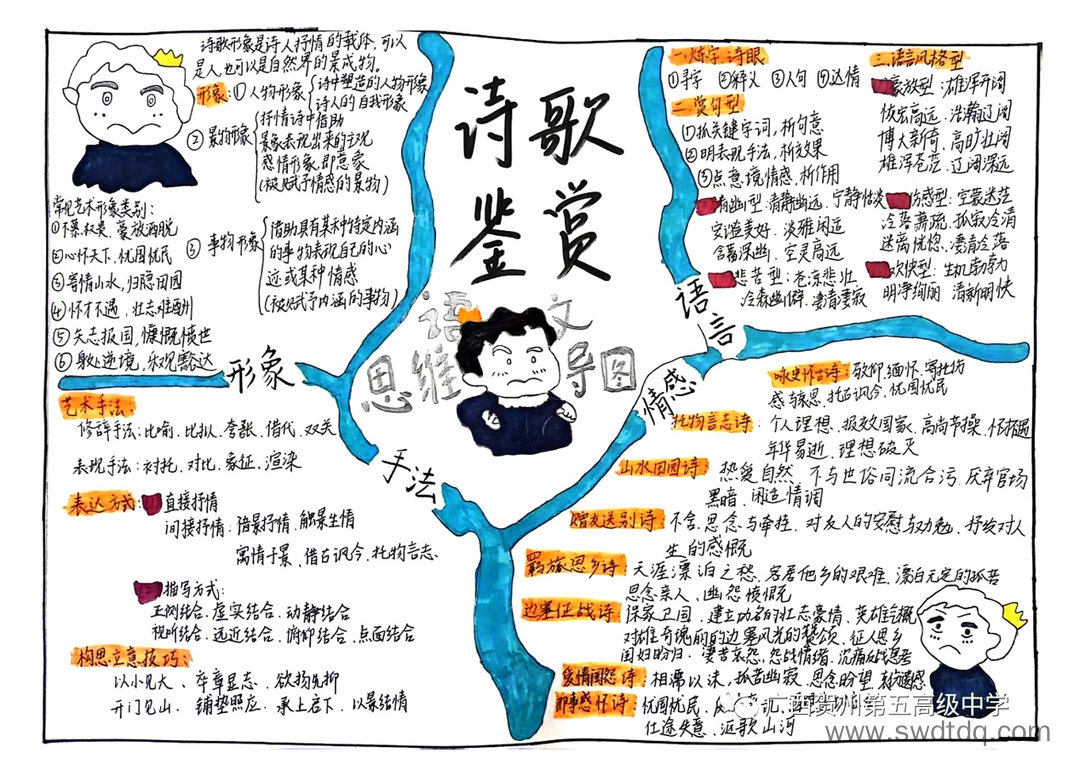 诗歌
鉴赏
语文
思维导图
形象
诗歌形象是诗人抒情的载体,可以
是人,也可以是自然界的景或物。
形象:① 人物形象
诗中塑造的人物形象
诗人的自我形象
② 景物形象
抒情诗中借助
景象表现出来的主观
感情形象,即意象
(被赋予情感的景物)
③ 事物形象
借助具有某种特定内涵
的事物表现自己的心
迹或某种情感
(被赋予内涵的事物)
常见艺术形象类别:
①不慕权贵、豪放洒脱
②心怀天下,忧国忧民
③寄情山水,归隐田园
④怀才不遇,壮志难酬
⑤矢志报国,慷慨愤世
⑥身处逆境,乐观豁达
手法
艺术手法:
修辞手法:比喻、比拟、夸张、借代、双关
表现手法:衬托、对比、象征、渲染
表达方式:
直接抒情
间接抒情、借景抒情、触景生情
寓情于景、借古讽今、托物言志
描写方式:
正侧结合、虚实结合、动静结合
视听结合、远近结合、俯仰结合、点面结合
构思立意技巧:
以小见大、卒章显志、欲扬先抑
开门见山、铺垫照应、承上启下、以景结情
语言
一.炼字、诗眼
①寻字 ②释义 ③入句 ④达情
二.赏句型
①抓关键字词,析句意
②明表现手法,析效果
③点意境情感,析作用
三.语言风格型
豪放型:雄浑开阔
恢宏高远、浩瀚辽阔
博大新奇、高旷壮阔
雄浑苍茫、辽阔深远
清幽型:清静幽远、宁静恬淡
安谧美好、淡雅闲远
含蓄深幽、空灵高远
伤感型:空蒙迷茫
冷落萧疏、孤寂冷清
迷离忧惚、凄清冷落
悲苦型:苍凉悲壮
冷森幽僻、凄清萧寂
欢快型:生机勃勃
明净绚丽、清新明快
情感
咏史怀古诗:敬仰、缅怀、寄托伤
感与哀思、托古讽今、忧国忧民
托物言志诗:个人理想、报效国家、高尚节操、怀才不遇
年华易逝、理想破灭
山水田园诗:热爱自然、不与世俗同流合污、厌弃官场
黑暗、闲适情调
赠友送别诗:不舍、思念与牵挂、对友人的安慰与劝勉、抒发对人
生的感慨
羁旅思乡诗:天涯漂泊之愁、客居他乡的艰难、漂泊无定的孤苦
思念亲人、幽怨愤慨
边塞征战诗:保家卫国、建立功名的壮志豪情、英雄气概
对雄奇瑰丽的边塞风光的赞颂、征人思乡
闺妇盼归、凄苦哀怨、怨战情绪、沉痛反战思考
爱情闺怨诗:相濡以沫、孤苦幽寂、思念盼望、
即事感怀诗:忧国忧民、
仕途失意、讴歌山河
广西贺州第五高级中学
www.swdtdq.com